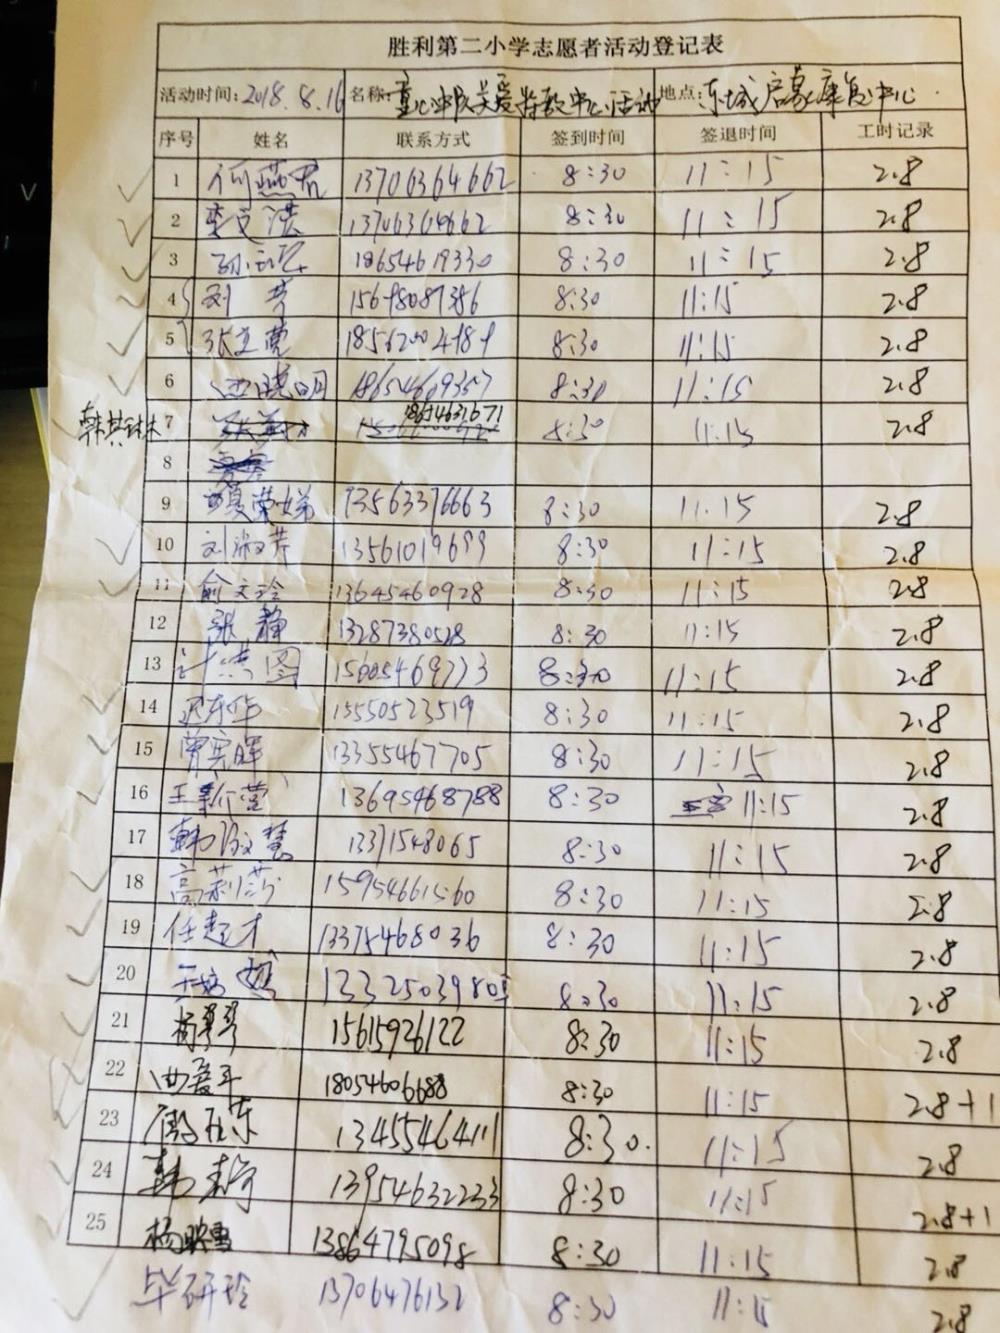 胜利第二小学志愿者活动登记表
活动时间: 2018.8.16 名称: 童心冲队关爱特教中心活动 地点: 东城启蒙康复中心
序号 姓名 联系方式 签到时间 签退时间 工时记录
1 何燕君 13706364662 8:30 11:15 2.8
2 李文洪 13706364662 8:30 11:15 2.8
3 18654619330 8:30 11:15 2.8
4 刘芳 8:30 11:15 2.8
5 张立霞 8:30 11:15 2.8
6 西晓明 18654669357 8:30 11:15 2.8
韩其林 7 18654631671 8:30 11:15 2.8
8
9 夏荣娣 13563376663 8:30 11:15 2.8
10 刘淑芹 13561019699 8:30 11:15 2.8
11 俞文玲 13645460928 8:30 11:15 2.8
12 张静 13287380528 8:30 11:15 2.8
13 15605469773 8:30 11:15 2.8
14 迟东华 15550523519 8:30 11:15 2.8
15 曾宪晖 13355467705 8:30 11:15 2.8
16 王新营 13695468788 8:30 11:15 2.8
17 韩汝慧 13371548065 8:30 11:15 2.8
18 高莉莎 15954661560 8:30 11:15 2.8
19 任超才 13375468036 8:30 11:15 2.8
20 8:30 11:15 2.8
21 杨翠琴 15615926122 8:30 11:15 2.8
22 西爱平 18054606688 8:30 11:15 2.8+1
23 13455464111 8:30. 11:15 2.8
24 韩 13954632233 8:30 11:15 2.8+1
25 杨映雪 13864795098 8:30 11:15 2.8
毕研玲 13706476132 8:30 11:15 2.8